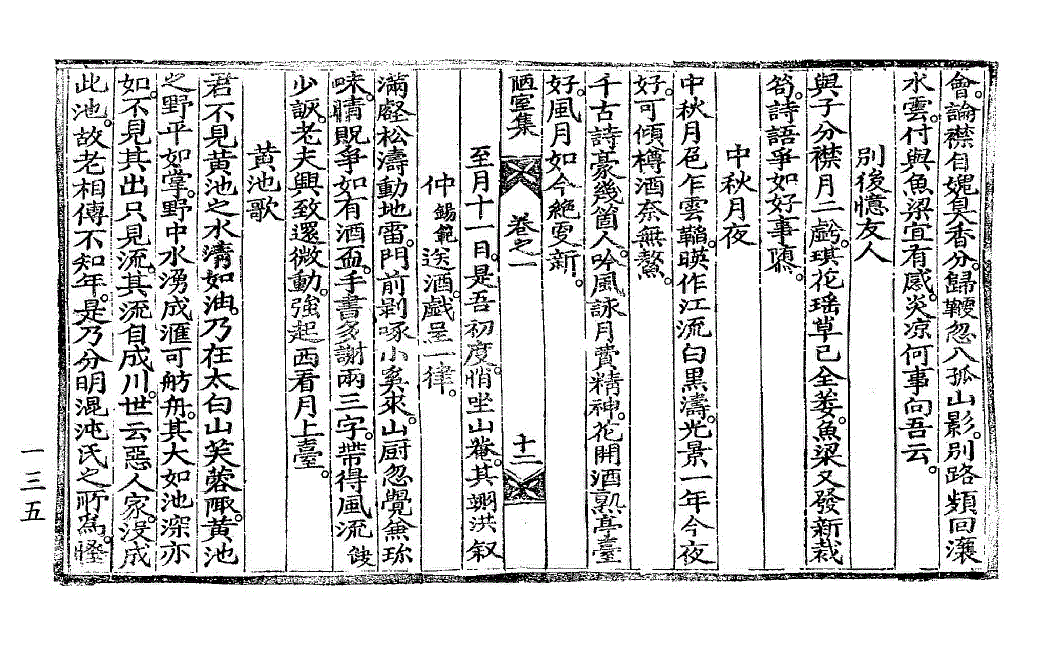 會論襟自媿臭香分歸鞭忽入孤山影別路頻回瀼
水雲付與魚梁宜有感炎凉何事向吾云
別後憶友人
與子分襟月二虧琪花瑶草已全萎魚梁又發新栽
笱詩語爭如好事隳
中秋月夜
中秋月色乍雲韜暎作江流白黑濤光景一年今夜
好可傾樽酒奈無鰲
千古詩豪幾箇人吟風詠月費精神花開酒熟亭臺
好風月如今絶更新
陋室集 卷之一 十二
至月十一日是吾初度悄坐山菴其翊洪叙
仲錫範送酒戲呈一律
滿壑松濤動地雷門前剥啄小奚來山厨忽覺兼珎
味情貺爭如有酒盃手書多謝兩三字帶得風流餕
少訴老夫興致還微動強起西看月上臺
黄池歌
君不見黄池之水清如油乃在太白山芙蓉陬黄池
之野平如掌野中水湧成滙可舫舟其大如池深亦
如不見其出只見流其流自成川世云惡人家没成
此池故老相傳不知年是乃分明混沌氏之所爲怪
一三五